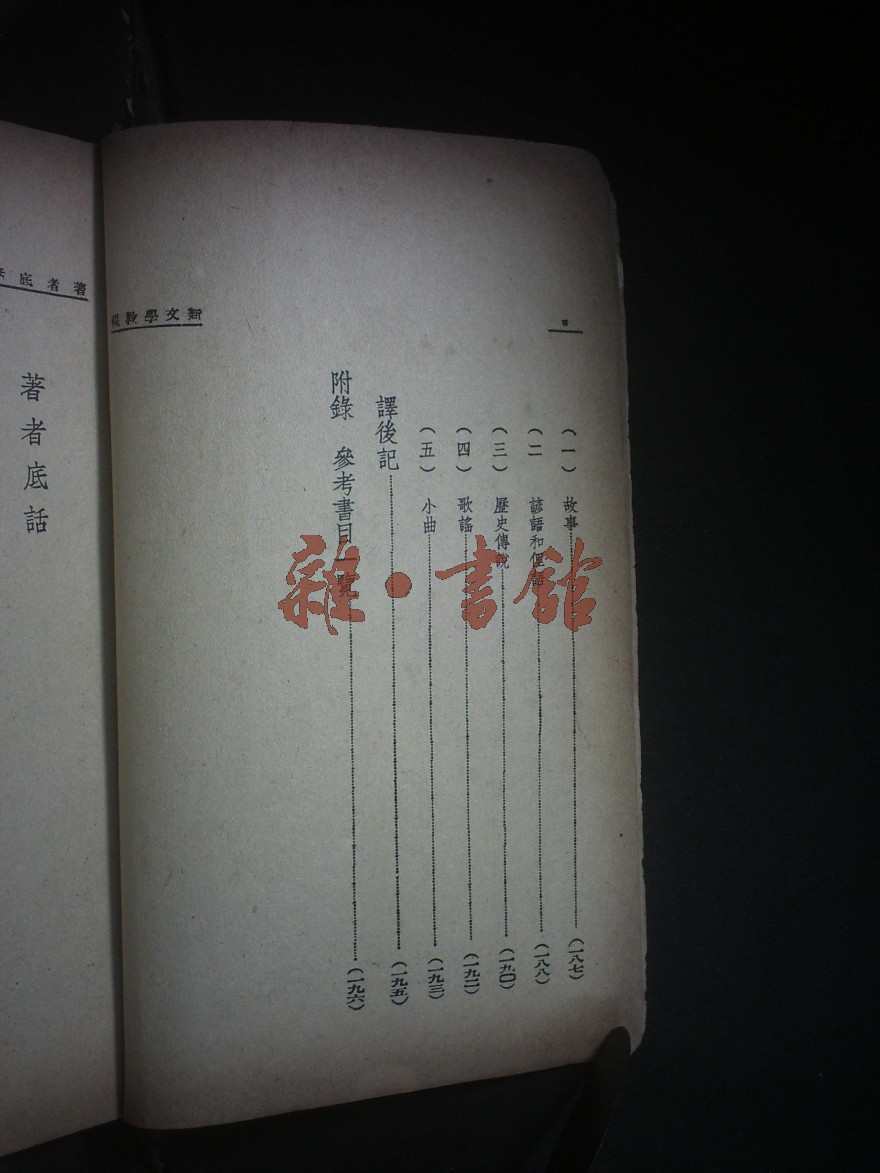 四
(一) 故事……(一八七)
(二 諺語和俚語……(一八八)
(三) 歷史傳說……(一九〇)
(四) 歌謠……(一九二)
(五) 小曲……(一九三)
譯後記……(一九五)
附錄 參考書目一覽……(一九六)
新文學教程
著者底
著者底話
雜·書館